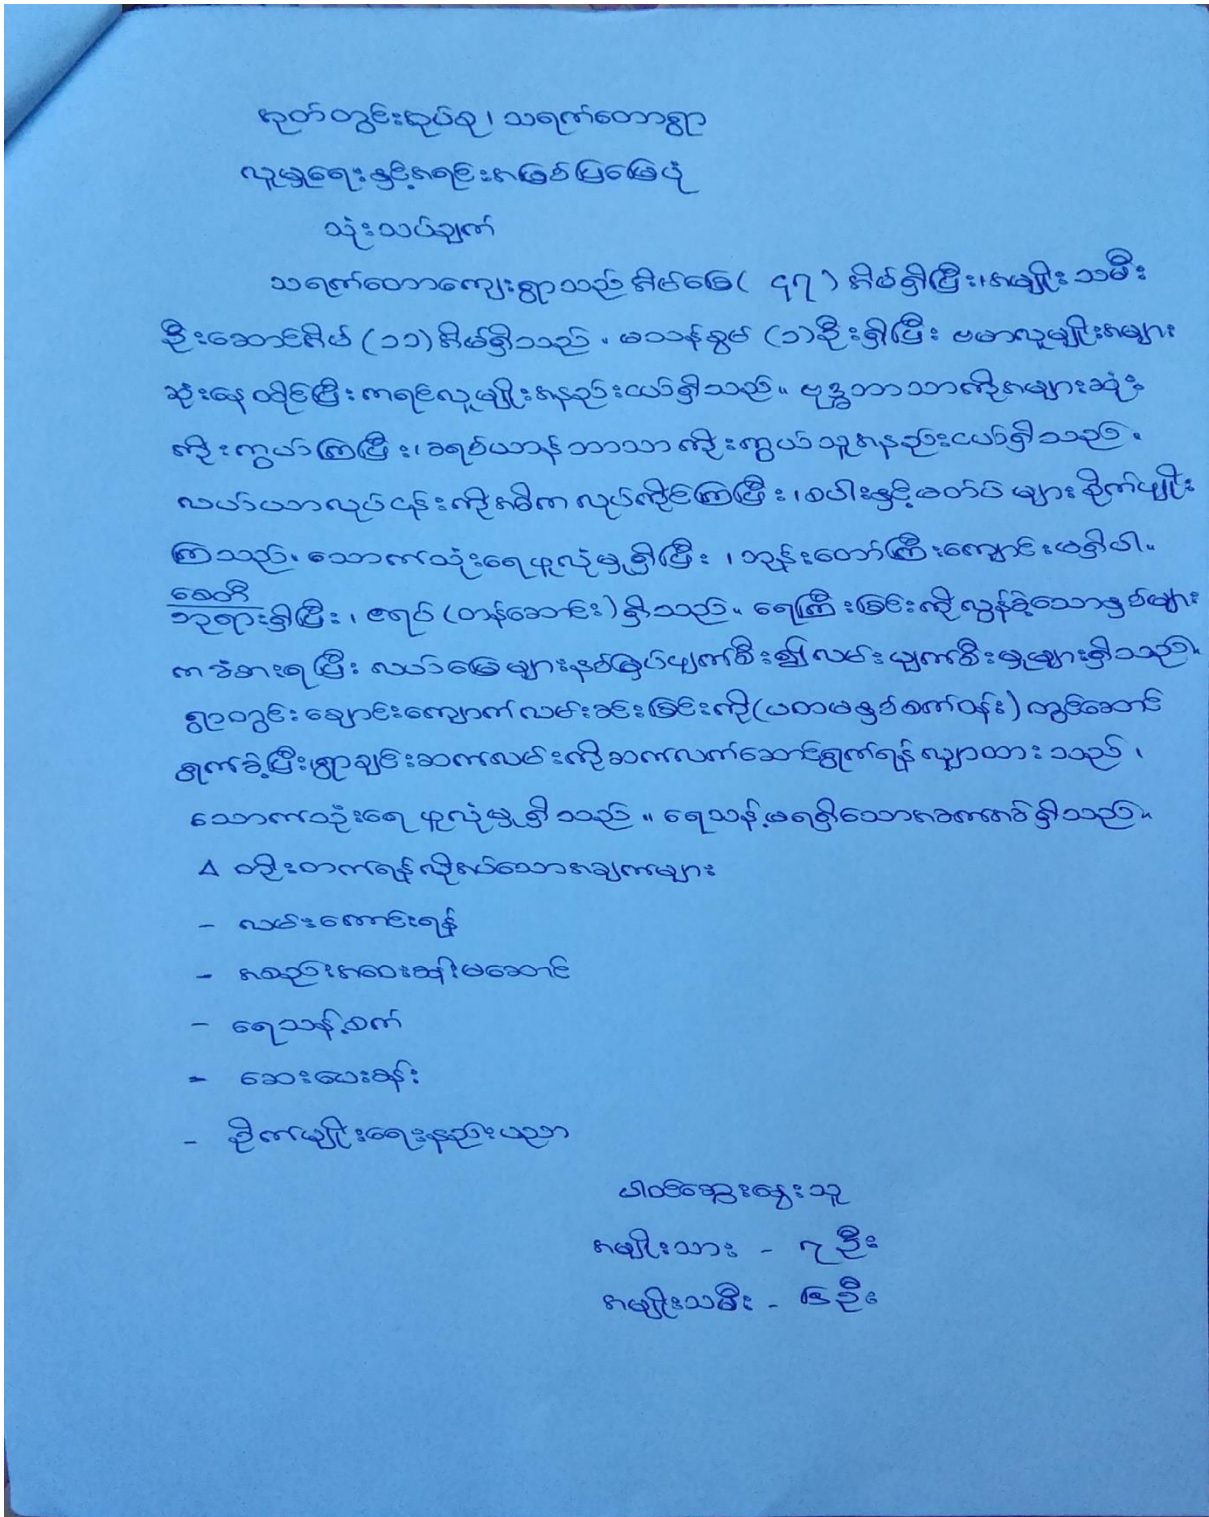 အုတ်တွင်းအုပ်စု၊ သရက်တောရွာ
လူမှုရေးနှင့်အရင်းအမြစ်ပြမြေပုံ
သုံးသပ်ချက်
သရက်တောကျေးရွာသည် အိမ်ခြေ( ၄၇ ) အိမ်ရှိပြီး၊အမျိုးသမီး
ဦးဆောင်အိမ် (၁၁)အိမ်ရှိသည်။ မသန်စွမ် (၁)ဦးရှိပြီး ဗမာလူမျိုးအများ
ဆုံးနေထိုင်ပြီး ကရင်လူမျိုးအနည်းငယ်ရှိသည်။ ဗုဒ္ဓဘာသာကိုအများဆုံး
ကိုးကွယ်ကြပြီး၊ခရစ်ယာန်ဘာသာကိုးကွယ်သူအနည်းငယ်ရှိသည်။
လယ်ယာလုပ်ငန်းကိုအဓိကလုပ်ကိုင်ကြပြီး၊စပါးနှင့်မတ်ပဲများစိုက်ပျိုး
ကြသည်။ သောက်သုံးရေဖူလုံမှုရှိပြီး ၊ဘုန်းတော်ကြီးကျောင်းမရှိပါ။
စေတီ
ဘုရားရှိပြီး၊ ဇရပ် (တန်ဆောင်း)ရှိသည်။ ရေကြီးခြင်းကိုလွန်ခဲ့သောနှစ်များ
က ခံစားရပြီး လယ်မြေများနစ်မြှပ်ပျက်စီး၍လမ်းပျက်စီးမှုများရှိသည်။
ရွာတွင်းချောင်းကျောက်လမ်းခင်းခြင်းကို(ပထမနှစ်စက်ဝန်း)တွင်ဆောင်
ရွက်ခဲ့ပြီး၊ရွာချင်းဆက်လမ်းကိုဆက်လက်ဆောင်ရွက်ရန်လျာထားသည်၊
သောက်သုံးရေ ဖူလုံမှုရှိသည် ။ ရေသန့်မရရှိသောအခက်အခဲရှိသည်။
∆ တိုးတက်ရန်လိုအပ်သောအချက်များ
- လမ်းကောင်းရန်
- အစည်းအဝေးခန်းမဆောင်
- ရေသန့်စက်
- ဆေးပေးခန်း
- စိုက်ပျိုးရေးနည်းပညာ
ပါဝင်ဆွေးနွေးသူ
အမျိုးသား - ၇ ဦး
အမျိုးသမီး - ၆ဦး